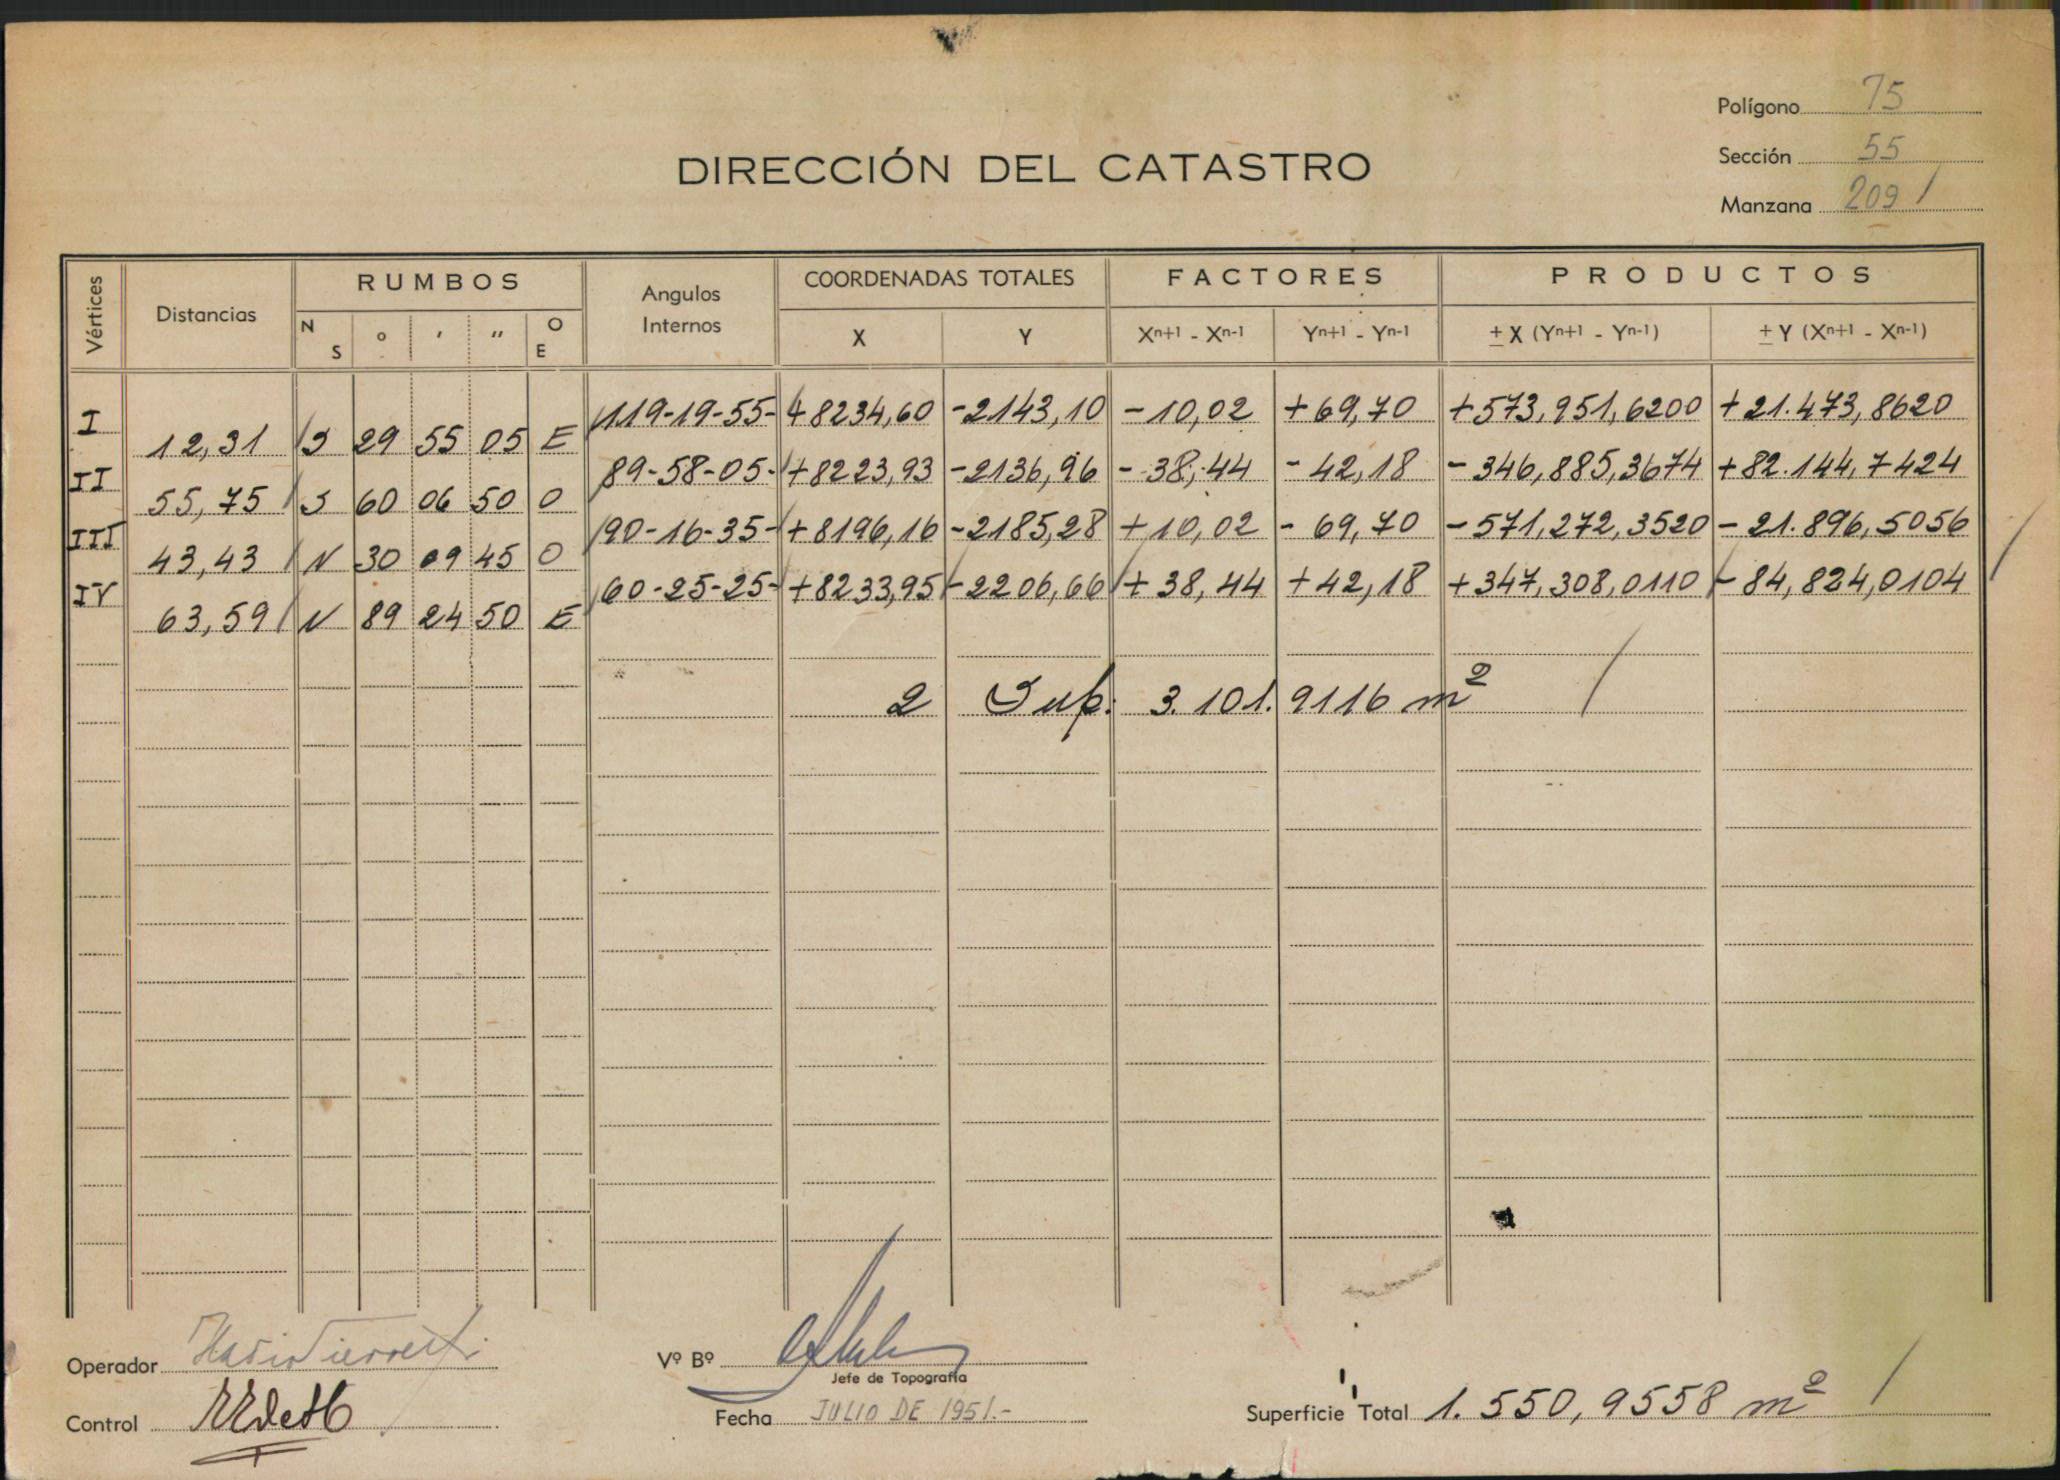 Polígono 75
DIRECCIÓN DEL CATASTRO
Sección 55
Manzana 209
Vértices Distancias RUMBOS Angulos Internos COORDENADAS TOTALES FACTORES PRODUCTOS
N S ° ′ ″ O E X Y Xⁿ⁺¹ - Xⁿ⁻¹ Yⁿ⁺¹ - Yⁿ⁻¹ ± X (Yⁿ⁺¹ - Yⁿ⁻¹) ± Y (Xⁿ⁺¹ - Xⁿ⁻¹)
I 119-19-55- +8234,60 -2143,10 -10,02 +69,70 +573,951,6200 +21.473,8620
12,31 S 29 55 05 E
II 89-58-05- +8223,93 -2136,96 -38,44 -42,18 -346,885,3674 +82.144,7424
55,75 S 60 06 50 O
III 90-16-35- +8196,16 -2185,28 +10,02 -69,70 -571,272,3520 -21.896,5056
43,43 N 30 09 45 O
IV 60-25-25- +8233,95 -2206,66 +38,44 +42,18 +347,308,0110 -84,824,0104
63,59 N 89 24 50 E
2 Sup: 3.101.9116 m²
Operador
Vº Bº
Jefe de Topografía
Control
Fecha JULIO DE 1951.-
Superficie Total 1.550,9558 m²